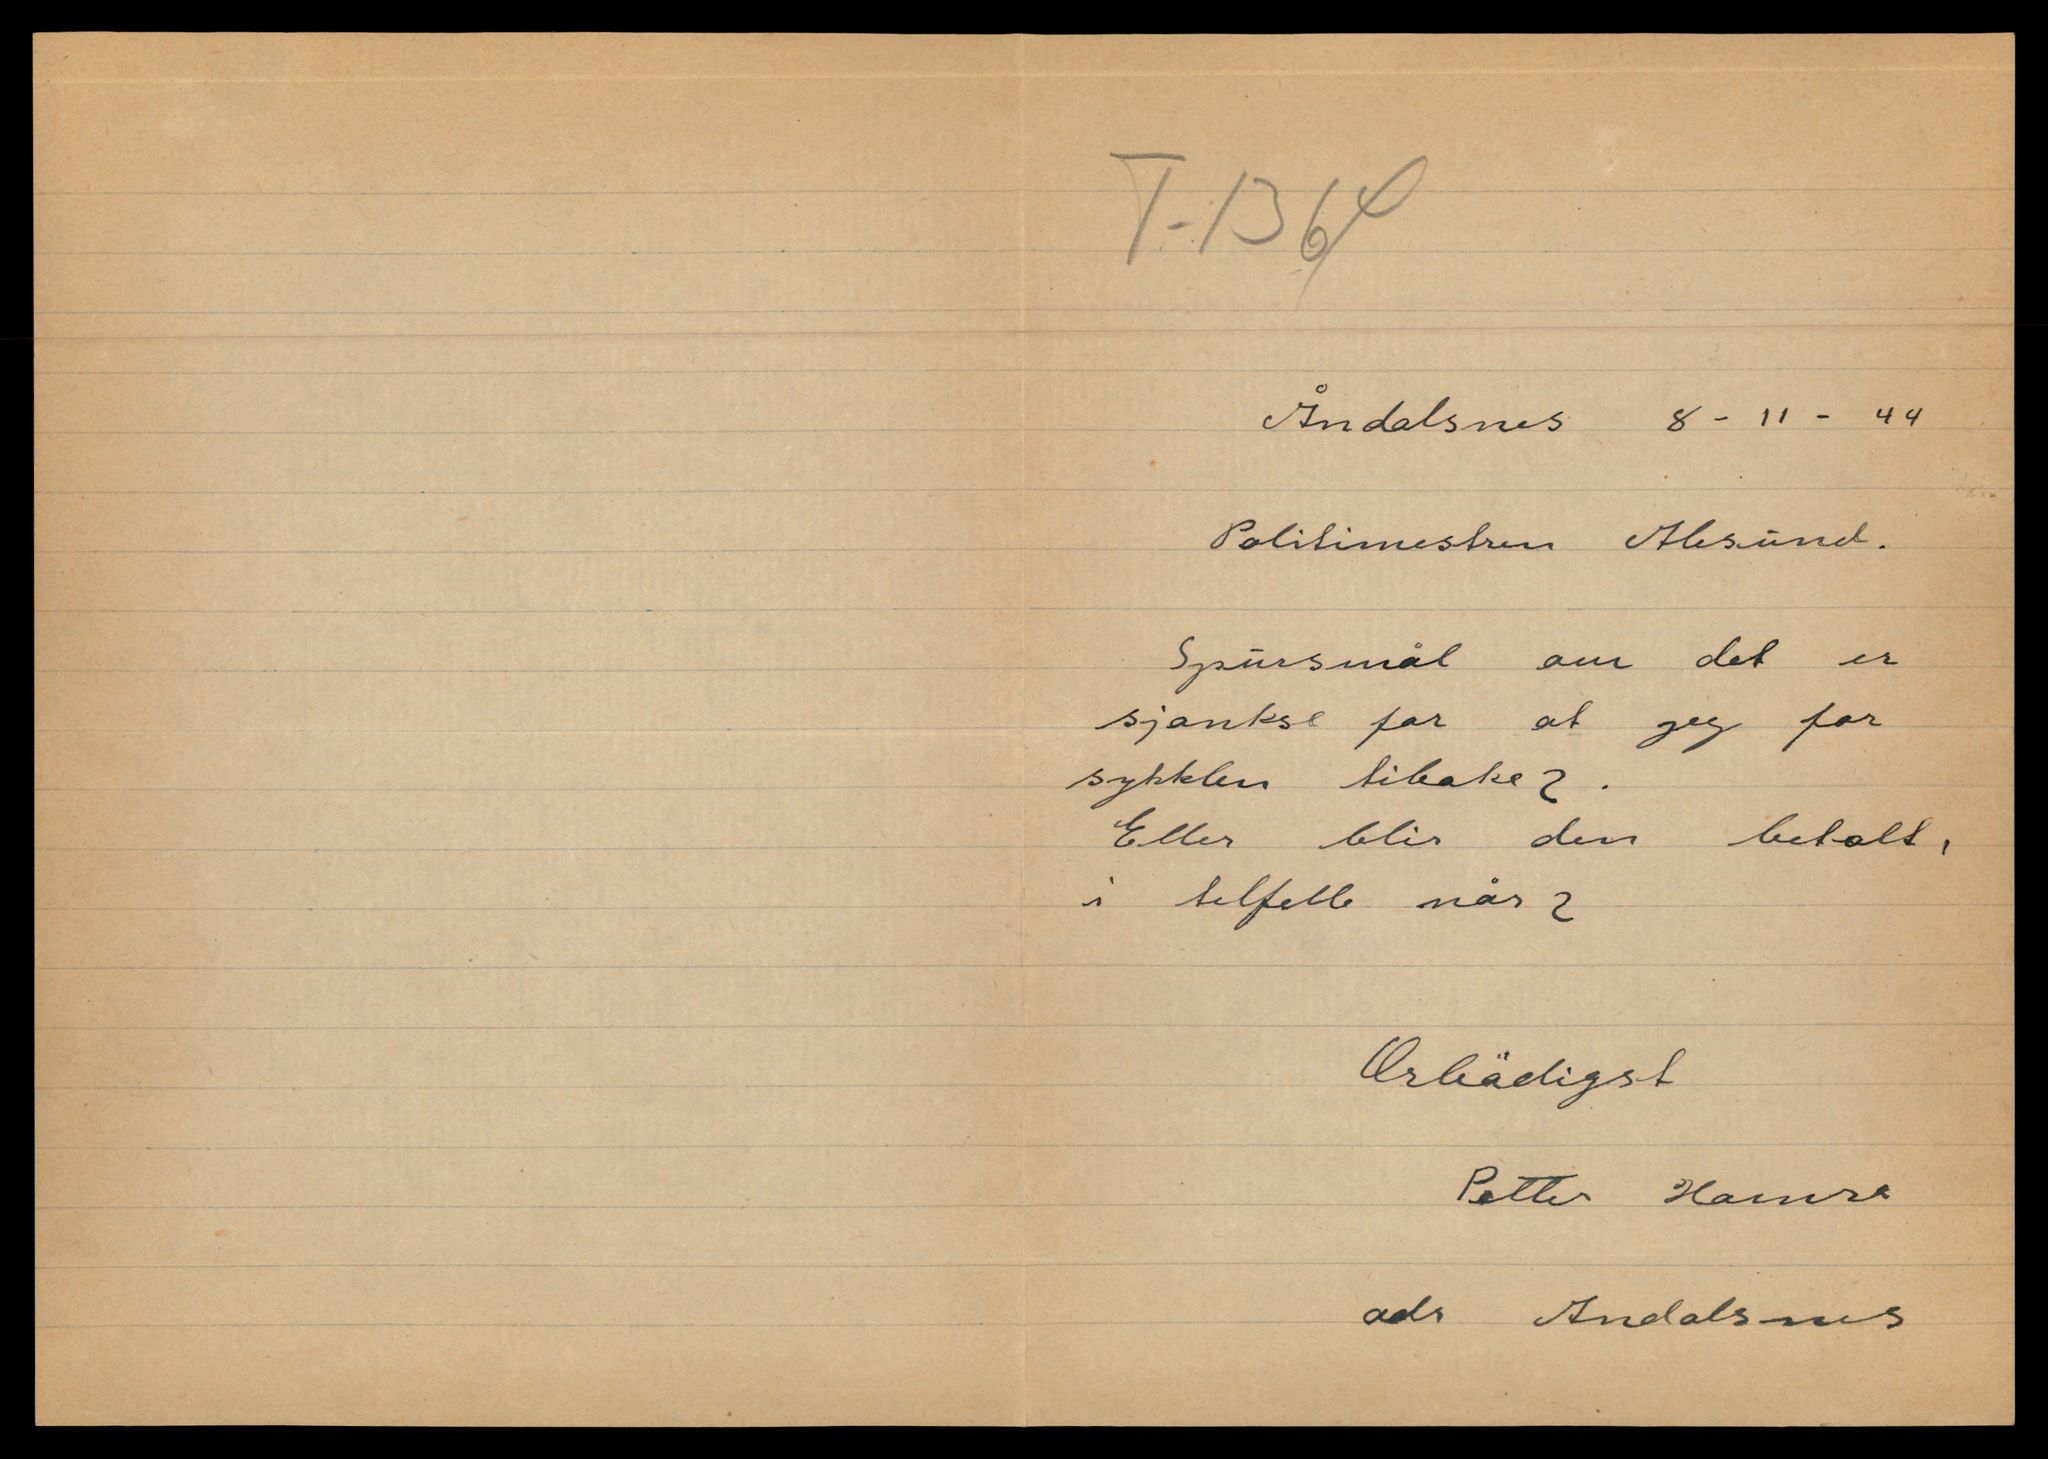 T-1364
Åndalsnes 8 - 11 - 44
Politimestren Alesund.
Spursmål om det er
sjankse for at jeg for
sykklen tibake?.
Eller blir den betalt,
i telfelle når?
Ærbädigst
Petter Hamre
adr Andalsnes